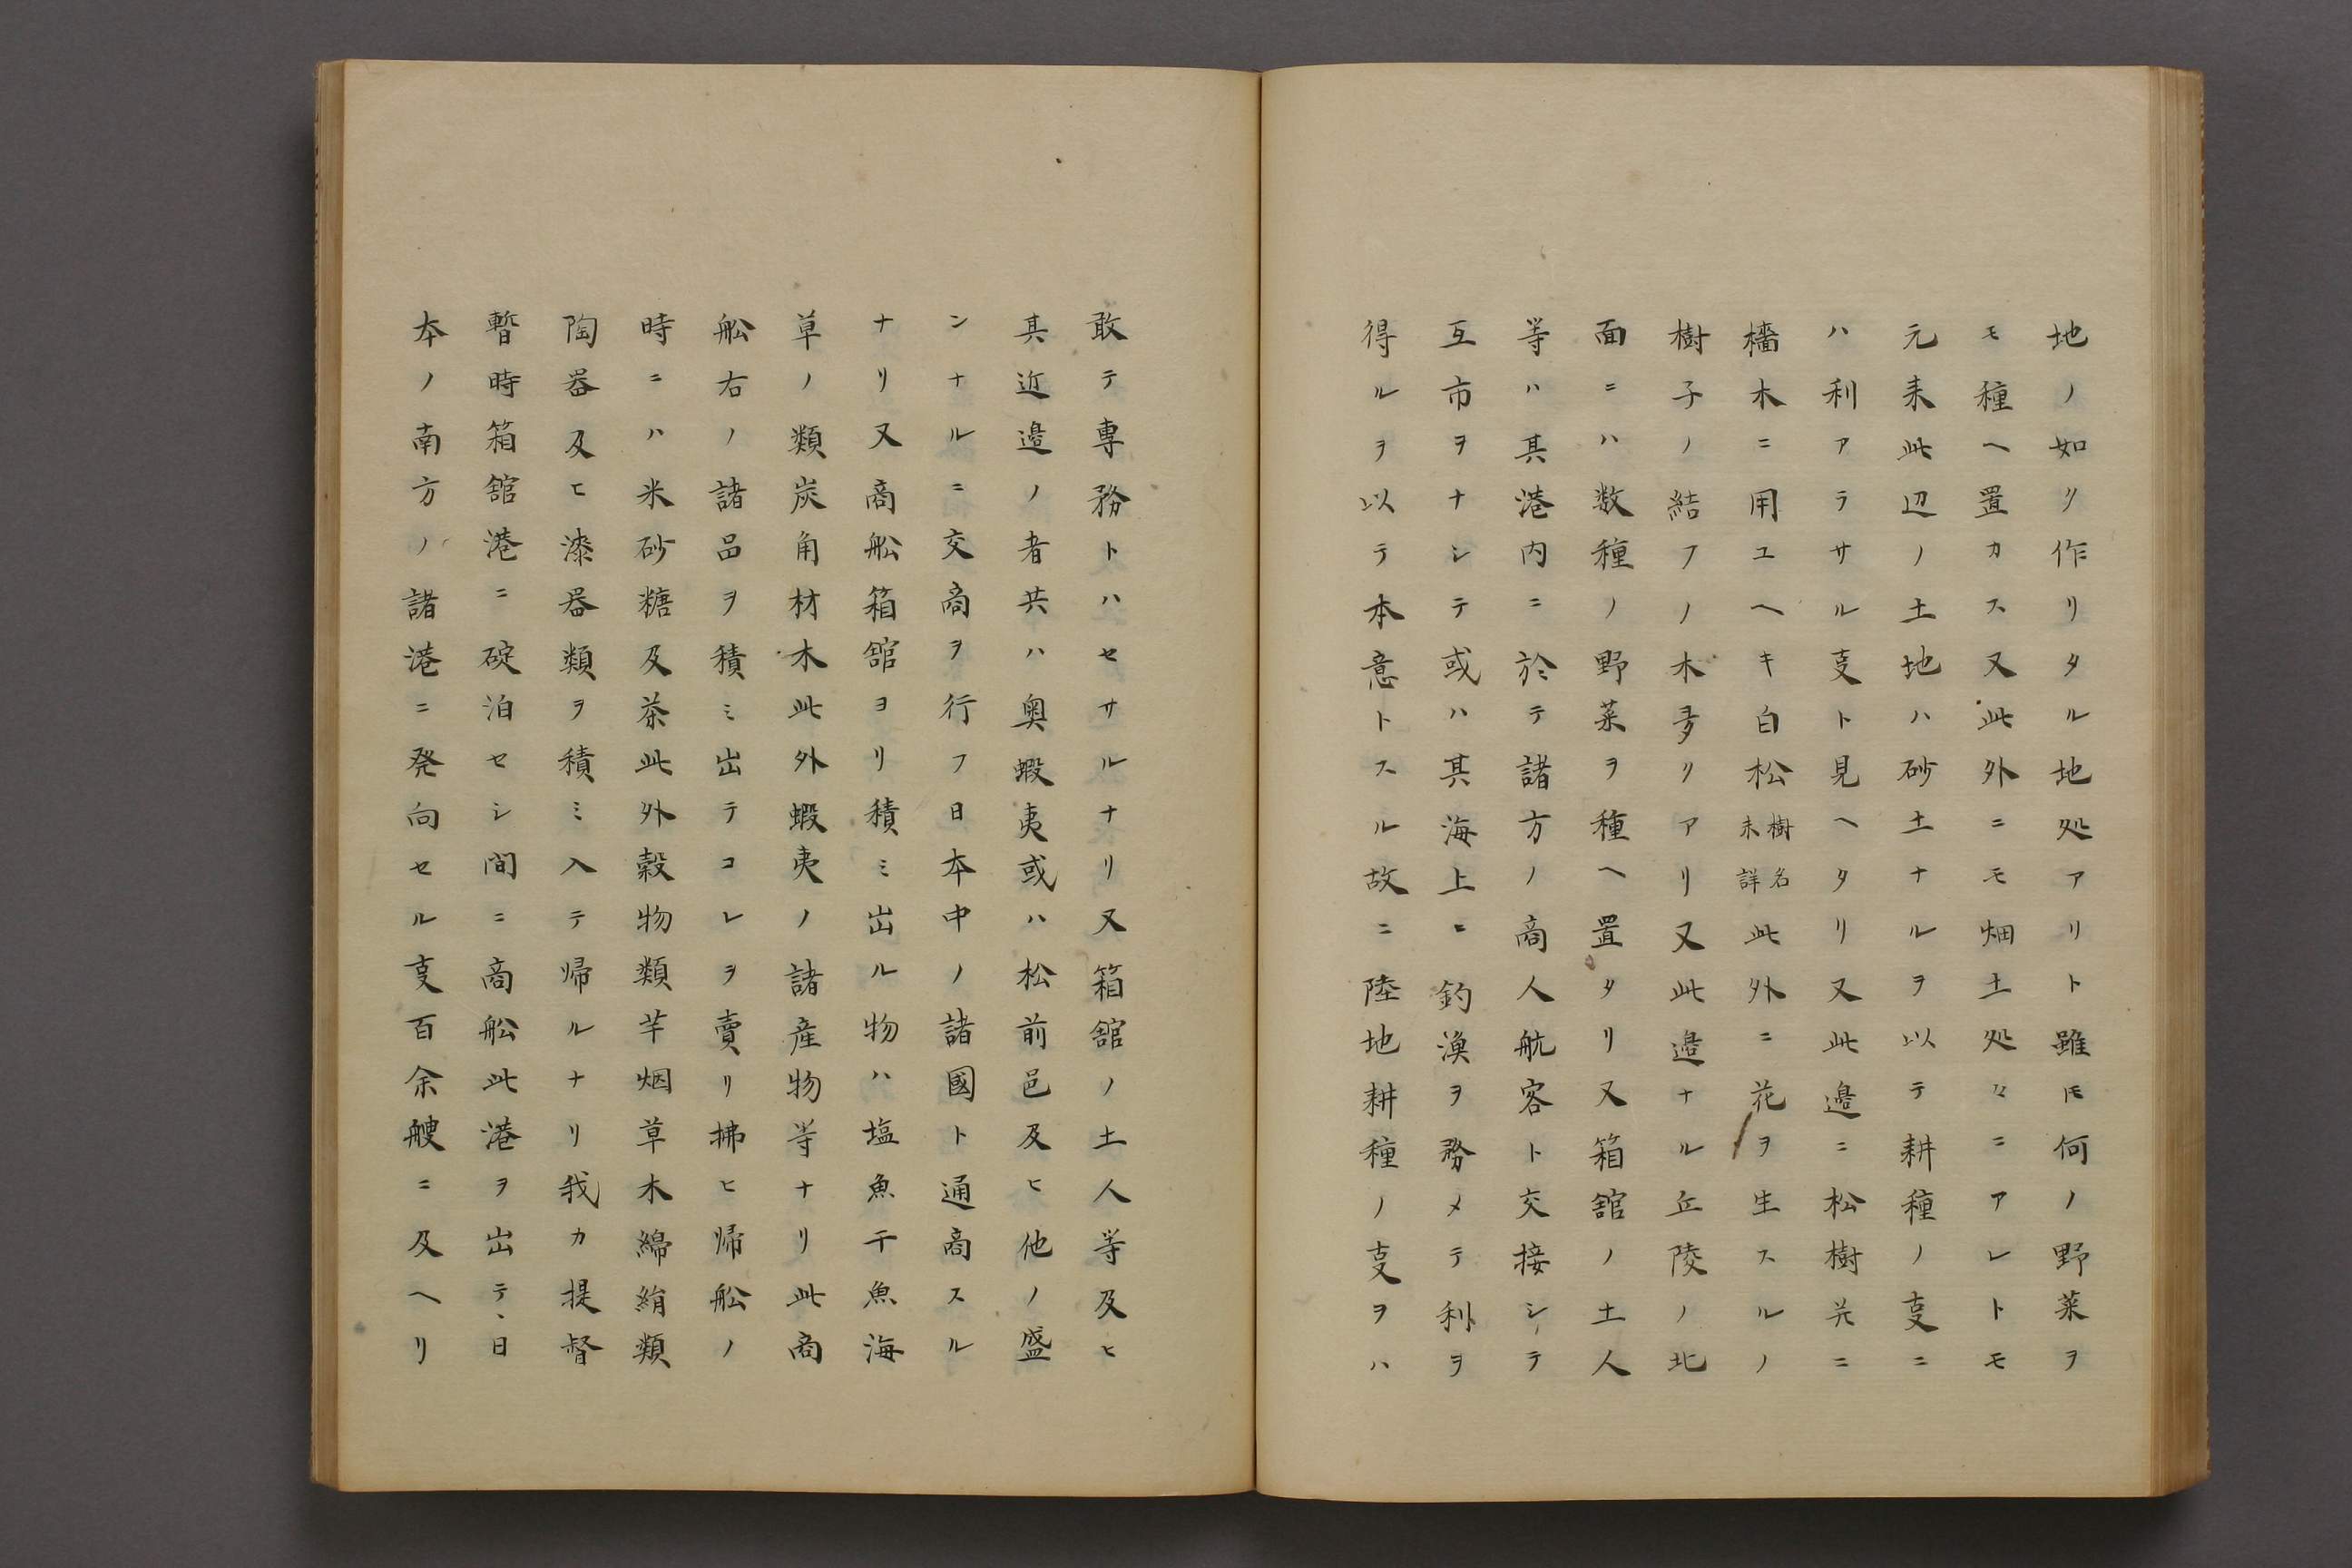 地ノ如ク作リタル地処アリト雖𪜈何ノ野菜ヲ
モ種ヘ置カス又此外ニモ畑土処々ニアレトモ
元来此辺ノ土地ハ砂土ナルヲ以テ耕種ノ㕝ニ
ハ利アラサル㕝ト見ヘタリ又此邉ニ松樹并ニ
檣木ニ用ユヘキ白松樹名未詳此外ニ花ヲ生スルノ
樹子ノ結フノ木夛リアリ又此邉ナル丘陵ノ北
面ニハ数種ノ野菜ヲ種ヘ置タリ又箱舘ノ土人
等ハ其港内ニ於テ諸方ノ商人航客ト交接シテ
互市ヲナシテ或ハ其海上ニ釣漁ヲ務メテ利ヲ
得ルヲ以テ本意トスル故ニ陸地耕種ノ㕝ヲハ
敢テ専務トハセサルナリ又箱舘ノ土人等及ヒ
其近邉ノ者共ハ奥蝦夷或ハ松前邑及ヒ他ノ盛
ンナルニ交商ヲ行フ日本中ノ諸國ト通商スル
ナリ又商舩箱舘ヨリ積ミ出ル物ハ塩魚干魚海
草ノ類炭角材木此外蝦夷ノ諸産物等ナリ此商
舩右ノ諸品ヲ積ミ出テコレヲ賣リ拂ヒ帰舩ノ
時ニハ米砂糖及茶此外穀物類芋烟草木綿絹類
陶器及ヒ漆器類ヲ積ミ入テ帰ルナリ我カ提督
暫時箱舘港ニ碇泊セシ間ニ商舩此港ヲ出テ、日
本ノ南方ノ諸港ニ発向セル㕝百余艘ニ及ヘリ